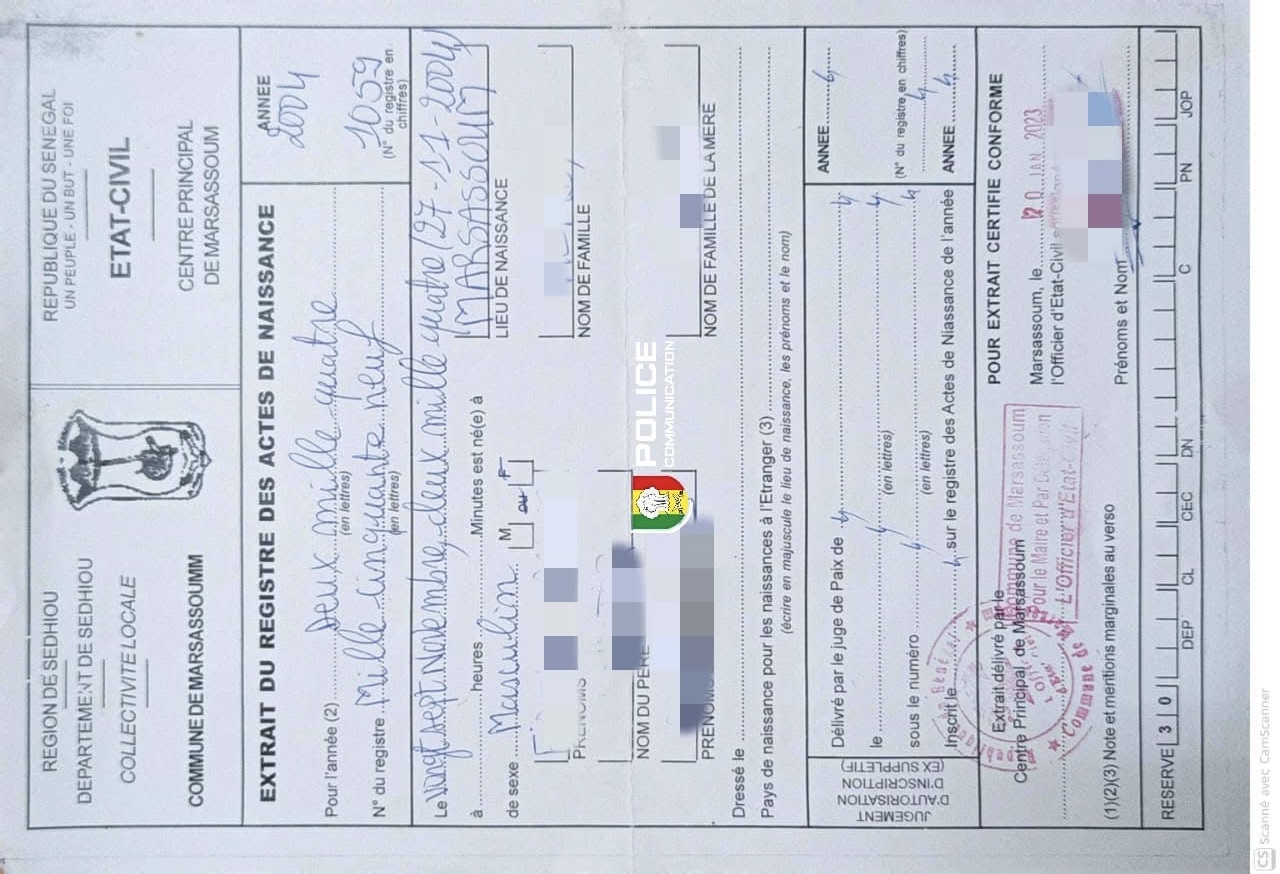 REGION DE SEDHIOU
DEPARTEMENT DE SEDHIOU
COLLECTIVITE LOCALE
COMMUNE DE MARSASSOUMM
REPUBLIQUE DU SENEGAL
UN PEUPLE - UN BUT - UNE FOI
ETAT-CIVIL
CENTRE PRINCIPAL
DE MARSASSOUM
EXTRAIT DU REGISTRE DES ACTES DE NAISSANCE
ANNEE
2004
Pour l'année (2) Deux mille quatre
(en lettres)
N° du registre Mille cinquante neuf
(en lettres)
1059
(N° du registre en
chiffres)
Le vingt sept Novembre deux mille quatre (27-11-2004)
à heures Minutes est né(e) à
MARSASSOUM
LIEU DE NAISSANCE
de sexe Masculin M ou F
PRENOMS
NOM DE FAMILLE
NOM DU PERE
PRENOMS
NOM DE FAMILLE DE LA MERE
POLICE
COMMUNICATION
Dressé le
Pays de naissance pour les naissances à l'Etranger (3)
(écrire en majuscule le lieu de naissance, les prénoms et le nom)
JUGEMENT
D'AUTORISATION
D'INSCRIPTION
(EX SUPPLETIF)
Délivré par le juge de Paix de
ANNEE
le
(en lettres)
(N° du registre en chiffres)
sous le numéro
(en lettres)
Inscrit le sur le registre des Actes de Niassance de l'année
ANNEE
Extrait délivré par le
Centre Principal de Marsassoum
Commune de Marsassoum
Pour le Maire et Par
L'Officier d'Etat-Civil
Commune de
POUR EXTRAIT CERTIFIE CONFORME
Marsassoum, le 20 JAN. 2023
l'Officier d'Etat-Civil
Prénoms et Nom
(1)(2)(3) Note et méritions marginales au verso
RESERVE 3 0
DEP CL CEC DN C PN JOP
CS Scanné avec CamScanner